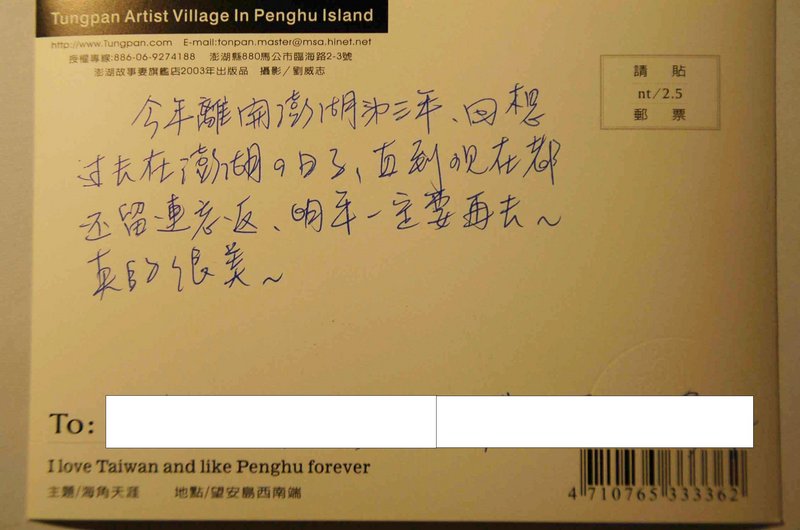 Tungpan Artist Village In Penghu Island
http://www.Tungpan.com E-mail:tonpan.master@msa.hinet.net
授權專線:886-06-9274188 澎湖縣880馬公市臨海路2-3號
澎湖故事妻旗艦店2003年出版品 攝影／劉威志
請貼
nt/2.5
郵票
今年離開澎湖第三年、回想
过去在澎湖の日子、直到現在都
还留連忘返、明年一定要再去~
真的很美~
To:
I love Taiwan and like Penghu forever
主題/海角天涯 地點/望安島西南端
4 710765 333362